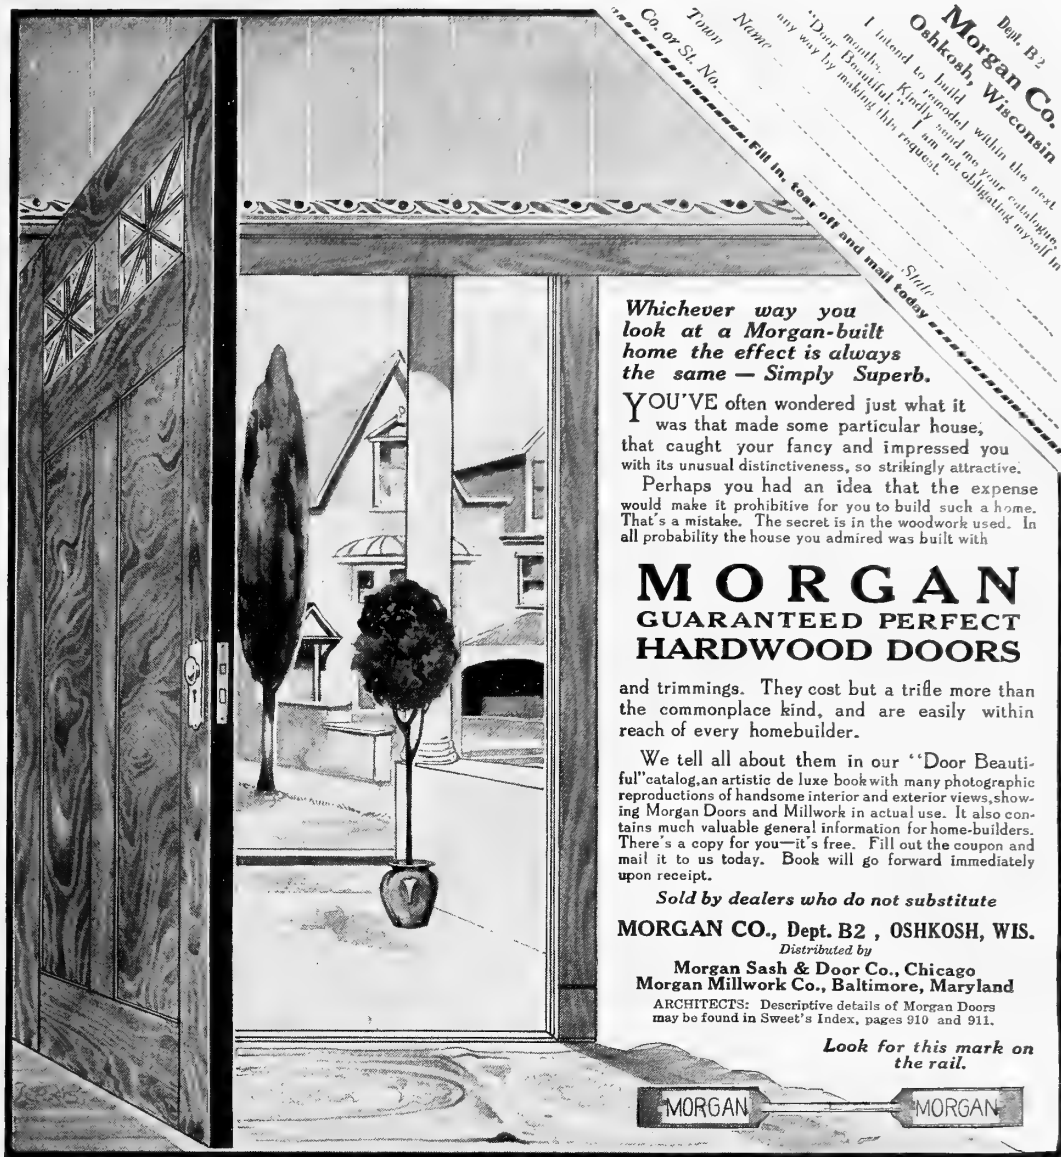 Dept. B2
Morgan Co.
Oshkosh, Wisconsin
I intend to build
remodel within the next
months. Kindly send me your catalogue,
"Door Beautiful." I am not obligating myself in
any way by making this request.
Name
Town
State
Co. or St. No.
Fill in, tear off and mail today
Whichever way you
look at a Morgan-built
home the effect is always
the same — Simply Superb.
YOU'VE often wondered just what it
was that made some particular house,
that caught your fancy and impressed you
with its unusual distinctiveness, so strikingly attractive.
Perhaps you had an idea that the expense
would make it prohibitive for you to build such a home.
That's a mistake. The secret is in the woodwork used. In
all probability the house you admired was built with
MORGAN
GUARANTEED PERFECT
HARDWOOD DOORS
and trimmings. They cost but a trifle more than
the commonplace kind, and are easily within
reach of every homebuilder.
We tell all about them in our "Door Beauti-
ful" catalog, an artistic de luxe book with many photographic
reproductions of handsome interior and exterior views, show-
ing Morgan Doors and Millwork in actual use. It also con-
tains much valuable general information for home-builders.
There's a copy for you—it's free. Fill out the coupon and
mail it to us today. Book will go forward immediately
upon receipt.
Sold by dealers who do not substitute
MORGAN CO., Dept. B2 , OSHKOSH, WIS.
Distributed by
Morgan Sash & Door Co., Chicago
Morgan Millwork Co., Baltimore, Maryland
ARCHITECTS: Descriptive details of Morgan Doors
may be found in Sweet's Index, pages 910 and 911.
Look for this mark on
the rail.
MORGAN MORGAN